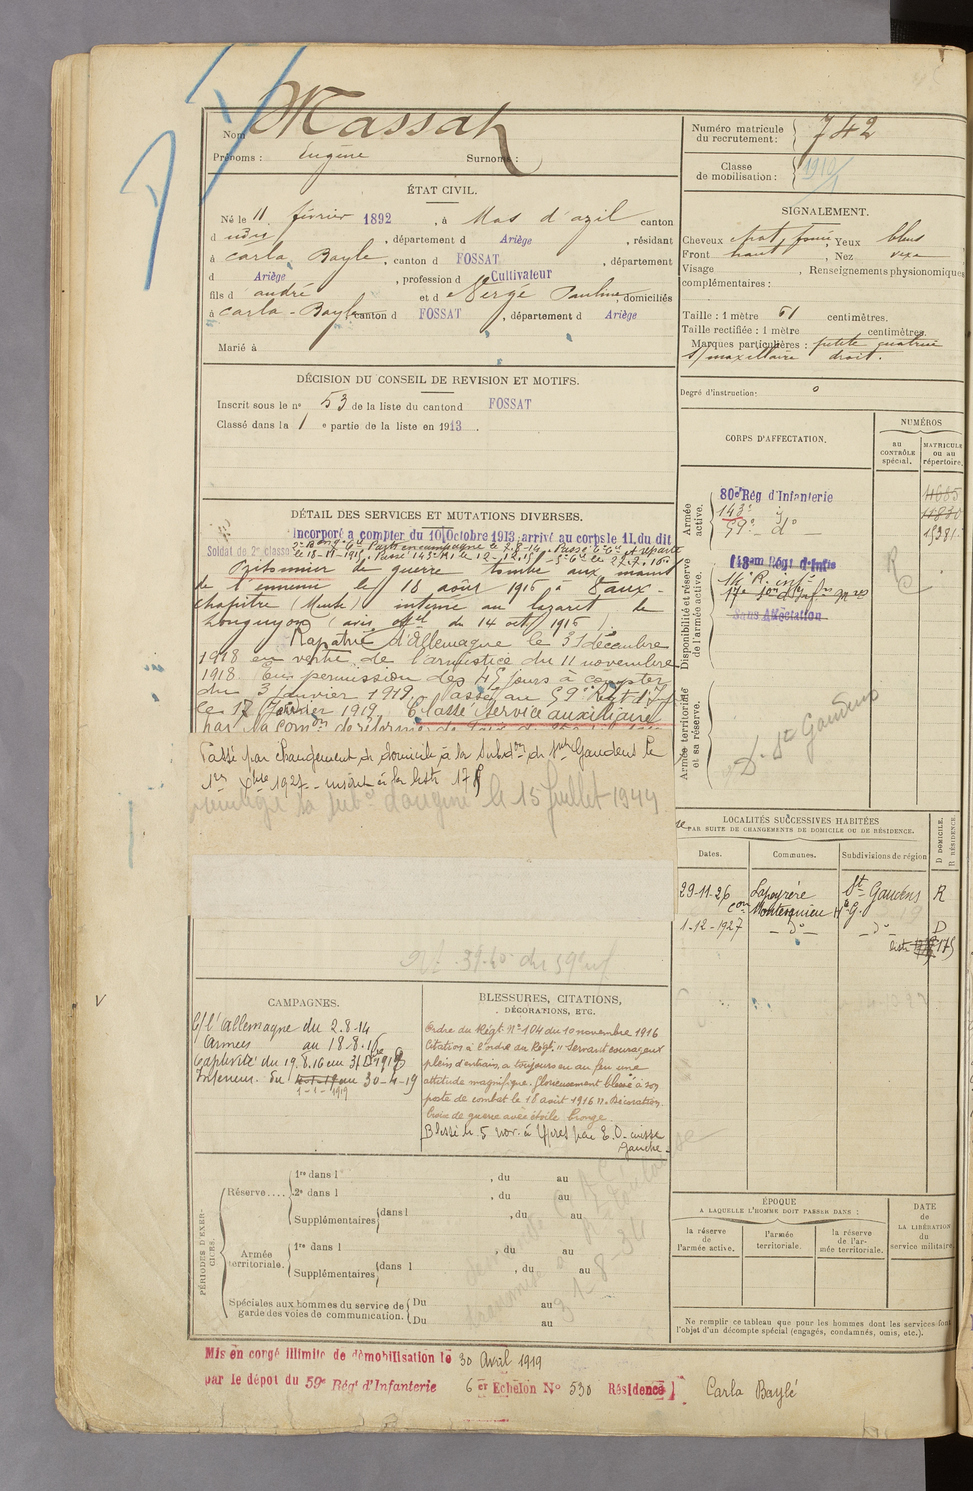 Nom Massat
Prénoms : Eugène Surnoms :
ÉTAT CIVIL.
Né le 11 février 1892, à Mas d'azil canton
d udit, département d Ariège, résidant
à Carla Bayle, canton d FOSSAT, département
d Ariège, profession d Cultivateur
fils d' andré et d e Vergé Pauline, domiciliés
à Carla-Bayle, canton d FOSSAT, département d Ariège
Marié à
DÉCISION DU CONSEIL DE REVISION ET MOTIFS.
Inscrit sous le n° 53 de la liste du canton d FOSSAT
Classé dans la 1 e partie de la liste en 1913.
DÉTAIL DES SERVICES ET MUTATIONS DIVERSES.
Incorporé à compter du 10 Octobre 1913, arrivé au corps le 11, du dit
Soldat de 2e classe
le 18-11-1915. Passé 143e R.I. le 12-12.15
Prisonnier de guerre tombé aux mains
de l'ennemi le 18 août 1916 à Vaux-
chapitre (Meuse) interné au lazaret de
Longuyon (avis off el du 14 oct 1916).
Rapatrié d'Allemagne le 31 décembre
1918 en vertu de l'armistice du 11 novembre
1918. En permission de 45 jours à compter
du 3 Janvier 1919. Passé au 59e Régt d'I
le 17 février 1919. Classé Service auxiliaire
par la com on de réforme de
Passé par changement de domicile à la Subd on de St Gaudens le
1er Xbre 1927 - inscrit à la liste 175
la sub on d'origine le 15 Juillet 1944
CAMPAGNES.
C/ l'Allemagne du 2.8-14
Armées au 18.8.16
Captivité du 19.8.16 au 31 Dbre 1918
Intérieur. du au 30-4-19
1-1-1919
BLESSURES, CITATIONS,
DÉCORATIONS, ETC.
Ordre du Régt. N° 104 du 10 novembre 1916
Citation à l'ordre du Régt. "Servant courageux
plein d'entrain, a toujours eu au feu une
attitude magnifique. Glorieusement blessé à son
poste de combat le 18 août 1916". Décoration.
Croix de guerre avec étoile bronze.
Blessé le 5 nov. à Ypres par E.O. cuisse
gauche.
PÉRIODES D'EXERCICES.
Réserve.... 1re dans l , du au
2e dans l , du au
Supplémentaires dans l , du au
Armée territoriale. 1re dans l , du au
Supplémentaires dans l , du au
Spéciales aux hommes du service de garde des voies de communication. Du au
Du au
31-8-34
Mis en congé illimité de démobilisation le 30 Avril 1919
par le dépôt du 59e Rég t d'Infanterie 6 er Echelon N° 530 Résidence Carla Baylé
Numéro matricule du recrutement : 742
Classe de mobilisation : 1912
SIGNALEMENT.
Cheveux chat. foncé, Yeux bleus
Front haut, Nez vexe
Visage , Renseignements physionomiques
complémentaires :
Taille : 1 mètre 61 centimètres.
Taille rectifiée : 1 mètre centimètres.
Marques particulières : petite cicatrice
s/ maxillaire droit.
Degré d'instruction : 0
CORPS D'AFFECTATION.
NUMÉROS
au CONTRÔLE spécial.
MATRICULE ou au répertoire.
Armée active.
80e Rég d'Infanterie 11685
143e d° 11830
59e d° 15381
Disponibilité et réserve de l'armée active.
14e R. inf ie
Sans Affectation
RC
Armée territoriale et sa réserve.
D. St Gaudens
LOCALITÉS SUCCESSIVES HABITÉES
PAR SUITE DE CHANGEMENTS DE DOMICILE OU DE RÉSIDENCE.
Dates. Communes. Subdivisions de région D DOMICILE. R RÉSIDENCE.
29-11-26 Lapeyrère St Gaudens R
con Montesquieu Hte G.
1-12-1927 - d° - - d° - D
liste 175
ÉPOQUE
A LAQUELLE L'HOMME DOIT PASSER DANS :
la réserve de l'armée active.
l'armée territoriale.
la réserve de l'armée territoriale.
DATE de LA LIBÉRATION du service militaire.
Ne remplir ce tableau que pour les hommes dont les services font
l'objet d'un décompte spécial (engagés, condamnés, omis, etc.).